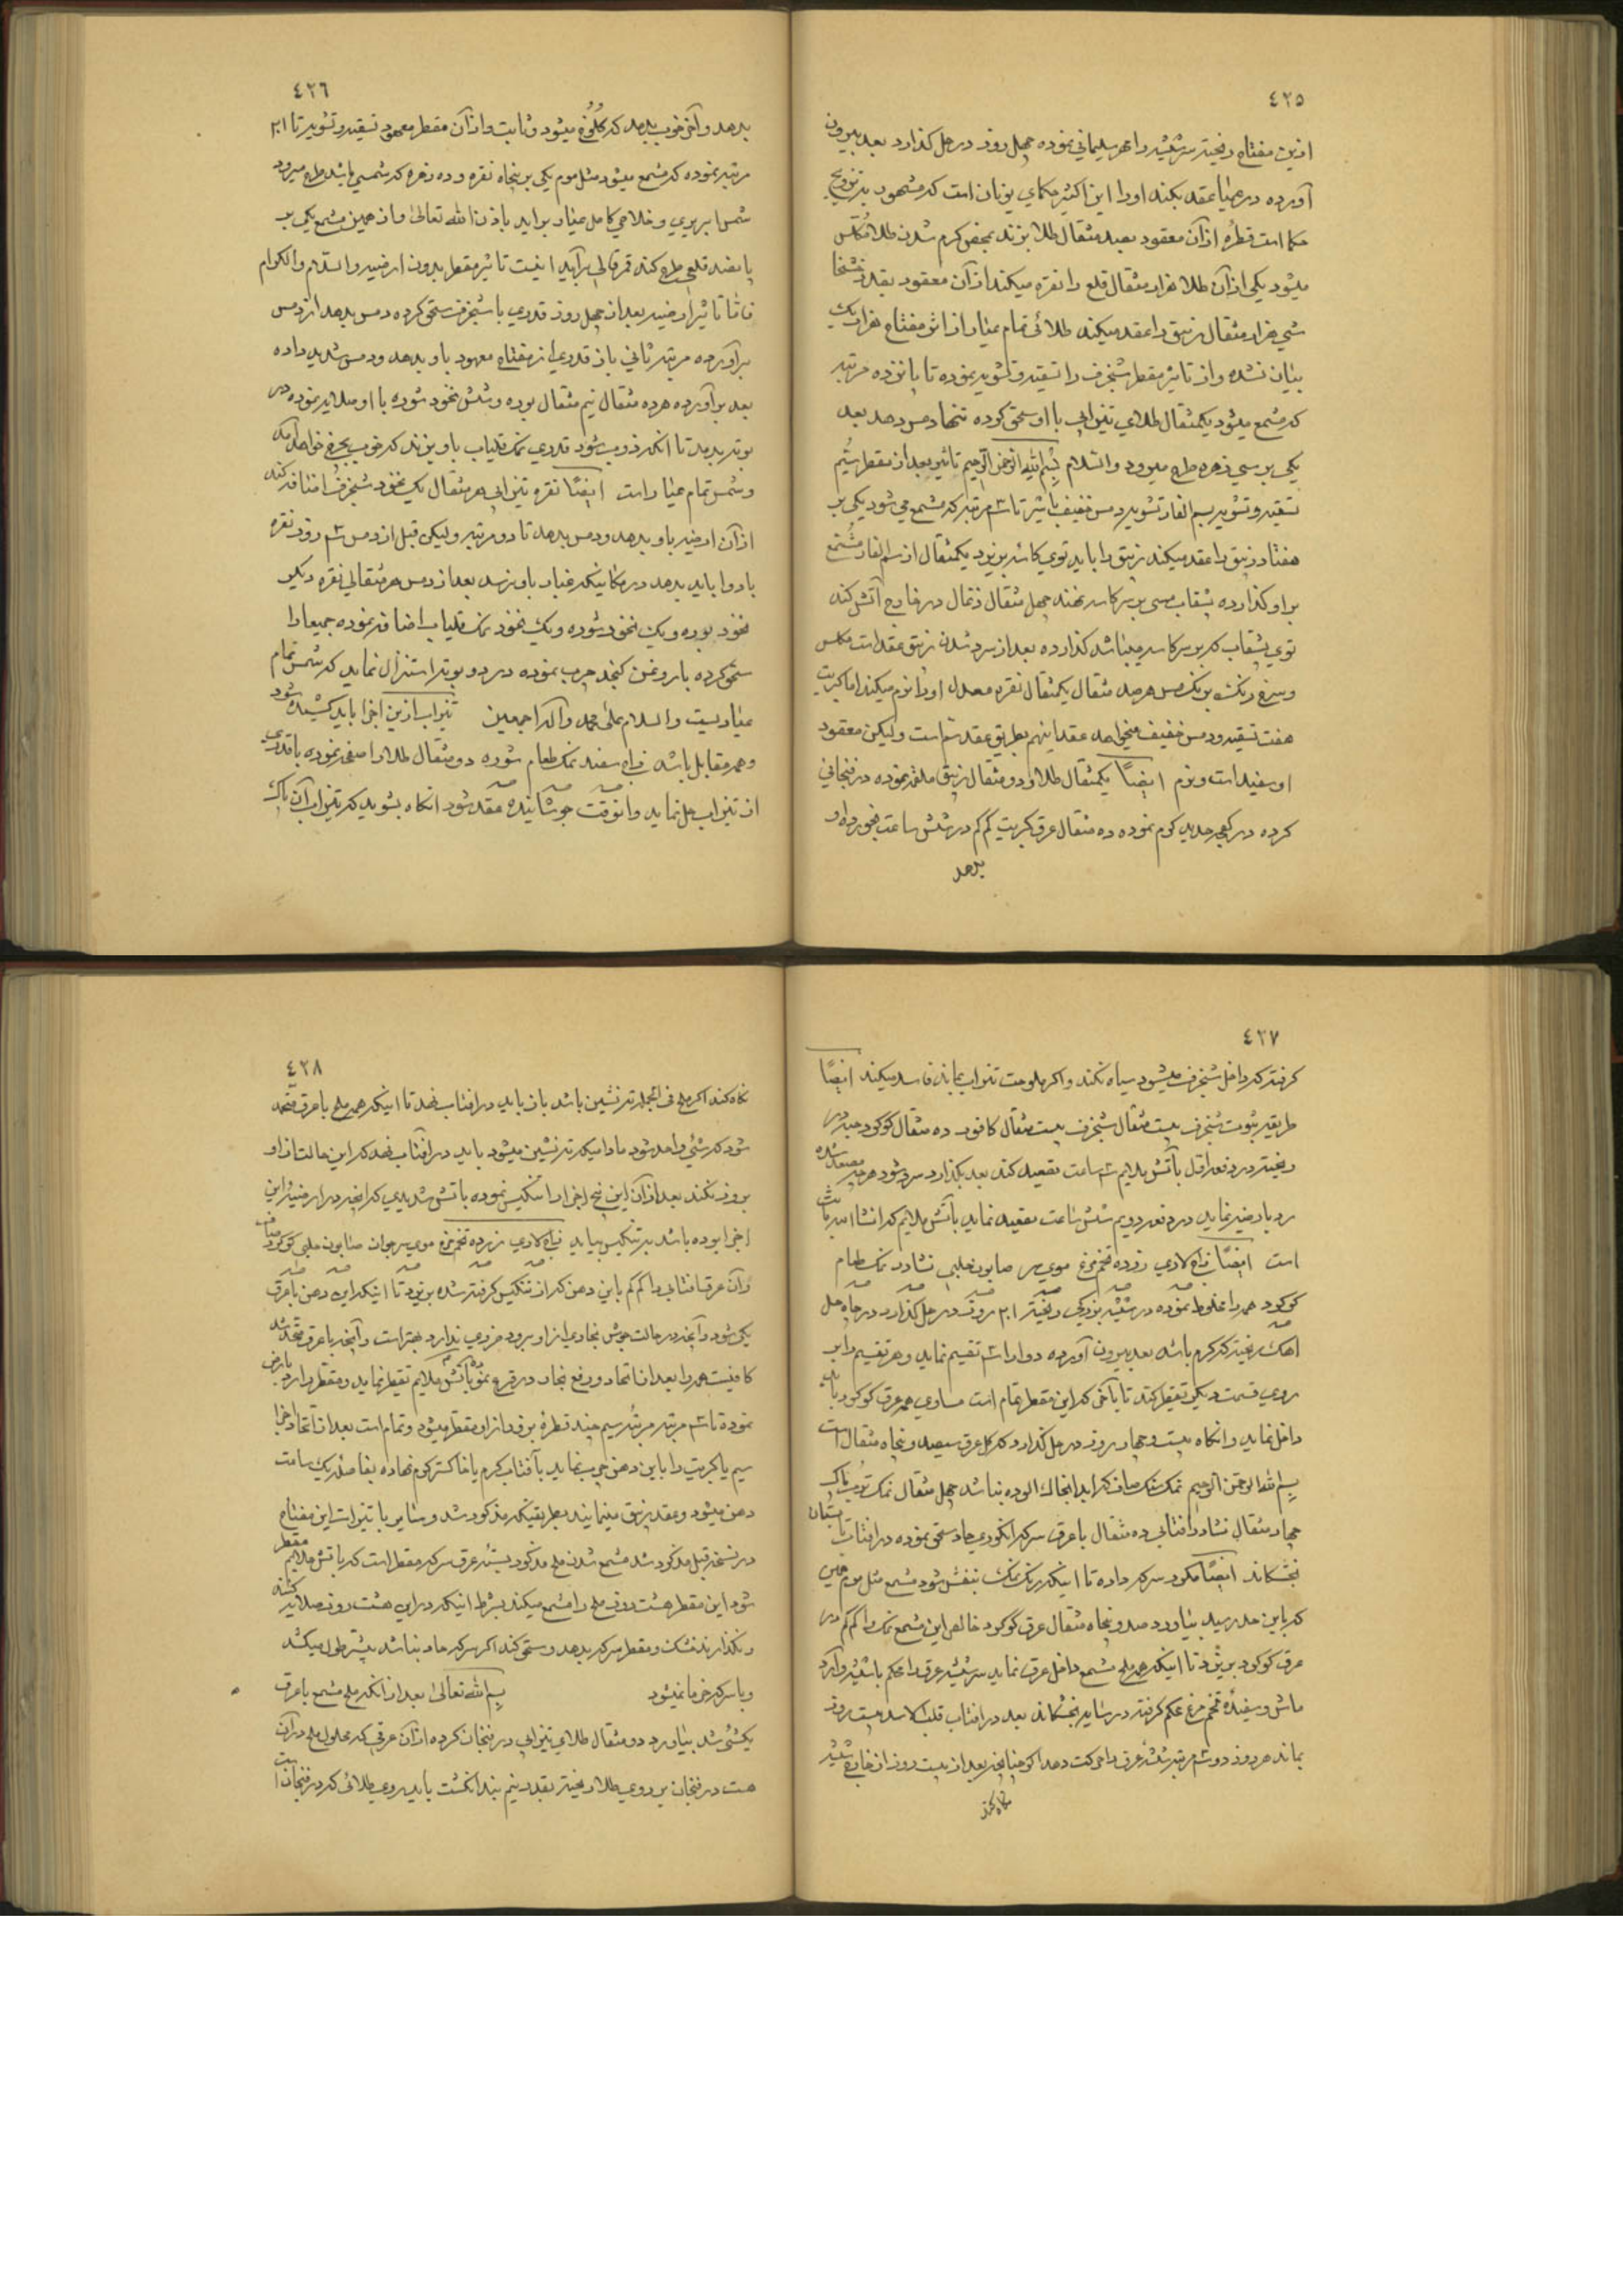 ٤٢٥
ازین مفتاح ریخته سر شیشه را مهر سلیمانی نموده چهل روز در حل کذارد بعد بیرون
آورده در همانجا عقد بکند اورا این اکثیر حکمای یونان است که مشهور بتزویج
حکما است قطرهٔ ازآن معقود بصد مثقال طلا بزند بمحض کرم شدن طلا مکلس
میشود یکی ازآن طلا هزار مثقال قلع را نقره میکند ازآن معقود بقدر خشخا
شی هزار مثقال زیبق را عقد میکند طلائی تمام عیار از اثر مفتاح هزار یک
بیان نشده واز تاثیر مقطر شنجرف را تسقیه وتشویه نموده تا پانزده مرتبه
که مشمع میشود یکمثقال طلای تیزابی با او سحق کرده تنها دمس دهد بعد
یکی بر سی زهره طرح میرود والسلام بسم الله الرحمن الرحیم تاثیر بعد از مقطر سیم
تسقیه وتشویه بسم الفار تشویه دمس خفیف باشد تا ۳ مرتبه که مشمع می شود یکی بر
هفتاد زیبق را عقد میکند زیبق را باید توی کاسه بریزد یکمثقال از سم الفار مشمع
براو کذارده بشقاب مسی بر سر کاسه نهند چهل مثقال زغال در خارج آتش کند
توی بشقاب که بر سر کاسه میباشد کذارده بعد از سرد شدن زیبق عقد است مکلس
وسرخ رنک برنک مس هر صد مثقال یکمثقال نقره معدل اورا نرم میکند اما کبریت
هفت تسقیه ودمس خفیف میخواهد عقد اینهم بطریق عقد سم است ولیکن معقود
او سفید است ونرم ایضاً یکمثقال طلا و دو مثقال زیبق ملغمه نموده در فنجانی
کرده در کفچه حدید کرم نموده ده مثقال عرق کبریت کم کم در شش ساعت بخورد او
بدهد
٤٢٦
بدهد وآخر خوب بدهد که کلوخ میشود وثابت واز آن مقطر معهود تسقیه وتشویه تا ۲۱
مرتبه نموده که مشمع میشود مثل موم یکی بر پنجاه نقره و ده زهره که شمسی باشد طرح میرود
شمس ابریزی وخلاصی کامل عیار براید باذن الله تعالی واز همین مشمع یکی بر
پانصد قلعی طرح کند قمر قالی برآید اینست تاثیر مقطر بدون ارضیه والسلام والاکرام
واما تاثیر ارضیه بعد از چهل روز قدری با شنجرف سحق کرده دمس بدهد از دمس
برآورده مرتبه ثانی باز قدری از مفتاح معهود باو بدهد ودمس شدید داده
بعد برآورده هر ده مثقال نیم مثقال بوره وشش نخود شوره با او صلایه نموده در
بوته بدمد تا انکه ذوب شود قدری نمک قلیاب باو بزند که خوب بچرخ خواهد آمد
وشمس تمام عیار است ایضاً نقره تیزابی هر مثقال یک نخود شنجرف اضافه کند
ازآن ارضیه باو بدهد ودمس بدهد تا دو مرتبه ولیکن قبل از دمس ۳ روز نقره
با دوا باید بدهد در مکانیکه غبار باو نرسد بعد از دمس هر مثقالی نقره دیکر
نخود بوره ویک نخود شوره ویک نخود نمک قلیاب اضافه نموده جمیعا را
سحق کرده با روغن کنجد چرب نموده در دو بوته استنزال نماید که شمس تمام
عیاریست والسلام علی محمد وآله اجمعین تیزاب ازین اجزا باید کشیده شود
وهمه مقابل باشد زاج سفید نمک طعام شوره دو مثقال طلا را صفحه نموده با قدری
از تیزاب حل نماید وانوقت جوشانیده عقد شود انکاه بشوید که تیزاب آن پاک
٤٢٧
کرفته که داخل شنجرف میشود سیاه نکند واکر ملوحت تیزاب بماند فاسد میکند ایضاً
طریقه ثبوت شنجرف بیست مثقال شنجرف بیست مثقال کافور ده مثقال کوکرد حبه در
ریخته در دفعه اول بآتش ملایم ۳ ساعت تصعید کند بعد بکذارد سرد شود هرچه مصعد شده
رد بارضیه نماید در دفعه دویم شش ساعت تصعید نماید بآتش ملایم که انشا الله ثابت
است ایضاً زاج لادی زرده تخم مرغ موی سر صابون حلبی نشادر نمک طعام
کوکرد همه را مخلوط نموده در شیشه بزرکی ریخته ۲۱ روز در حل کذارد در چاه حل
اهک ریخته که کرم باشد بعد بیرون آورده دوا را ۳ تقسیم نماید وهر تقسیم را بر
روی قسمت دیکر تقطیر کند تا بآخر که این مقطر تمام است مساوی همه عرق کوکرد باید
داخل نماید وانکاه بیست وچهار روز در حل کذارد که کل عرق سیصد وپنجاه مثقال است
بسم الله الرحمن الرحیم نمک سنک صاف که ابدا بخاک الوده نباشد چهل مثقال نمک ترب پاک
چهار مثقال نشادر افتابی ده مثقال با عرق سرکه انکوری حاد سحق نموده در افتاب تابستان
بخشکاند ایضاً مکرر سرکه داده تا اینکه رنک نمک بنفش شود مشمع مثل موم همین
که باین حد رسید بیاورد صد وپنجاه مثقال عرق کوکرد خالص این مشمع نمک را کم کم در
عرق کوکرد بریزد تا اینکه همه ملح مشمع داخل عرق نماید سر شیشه عرق را محکم با شیشه وآرد
ماش وسفیدهٔ تخم مرغ محکم کرفته در سایه بخشکاند بعد در افتاب قلب الاسد بیست روز
بماند هر روز دو ۳ مرتبه شیشه عرق را حرکت دهد اکر چنانچه بعد از بیست روز از خارج شیشه
نکاه کند
٤٢٨
نکاه کند اکر ملح فی الجمله ته نشین باشد باز باید در افتاب نهد تا اینکه همه ملح با عرق متحد
شود که شیٔ واحد شود مادامیکه ته نشین میشود باید در افتاب نهد که این حالت از او
بروز نکند بعد ازآن این پنج اجزا را تنکیس نموده باتش شدیدی که انچه در ارضیهٔ این
اجزا بوده باشد به تنکیس بیاید زاج لادی زرده تخم مرغ موی سر جوان صابون حلبی کوکرد صاف
وآن عرق افتابی را کم کم باین دهن که از تنکیس کرفته شده بریزد تا اینکه این دهن با عرق
یکی شود وآنچه در حالت جوش بخاری از او برود ضرری ندارد بهتر است وآنچه با عرق متحد شد
کافیست همه را بعد از اتحاد ورفع بخار در قرع نموده بآتش ملایم تقطیر نماید ومقطر را رد بارض
نموده تا ۳ مرتبه مرتبهٔ سیم چند قطرهٔ برق دار از او مقطر میشود وتمام است بعد از اتحاد اجزا
سیم یا کبریت را باین دهن چرب نماید بآفتاب کرم یا خاکستر کرم نهاده بفاصلهٔ یک ساعت
دهن میشود وعقد زیبق مینمایند بطریقیکه مذکور شد وسایر با تیزاب این مفتاح
در نسخهٔ قبل مذکور شد مشمع شدن ملح مذکور بستهٔ عرق سرکه مقطر است که باتش ملایم مقطر
شود این مقطر هشت روز ملح را مشمع میکند بشرط اینکه در این هشت روز صلایه کشد
ونکذارند خشک ومقطر سرکه بدهد وسحق کند اکر سرکه حاد نباشد بیشتر طول میکشد
ویا سرکه خرما نمیشود بسم الله تعالی بعد از انکه ملح مشمع با عرق
یکشیٔ شد بیاورد دو مثقال طلای تیزابی در فنجان کرده ازآن عرقی که محلول ملح درآن
هست در فنجان بر روی طلا ریخته بقدر نیم بند انکشت باید روی طلائی که در فنجان است